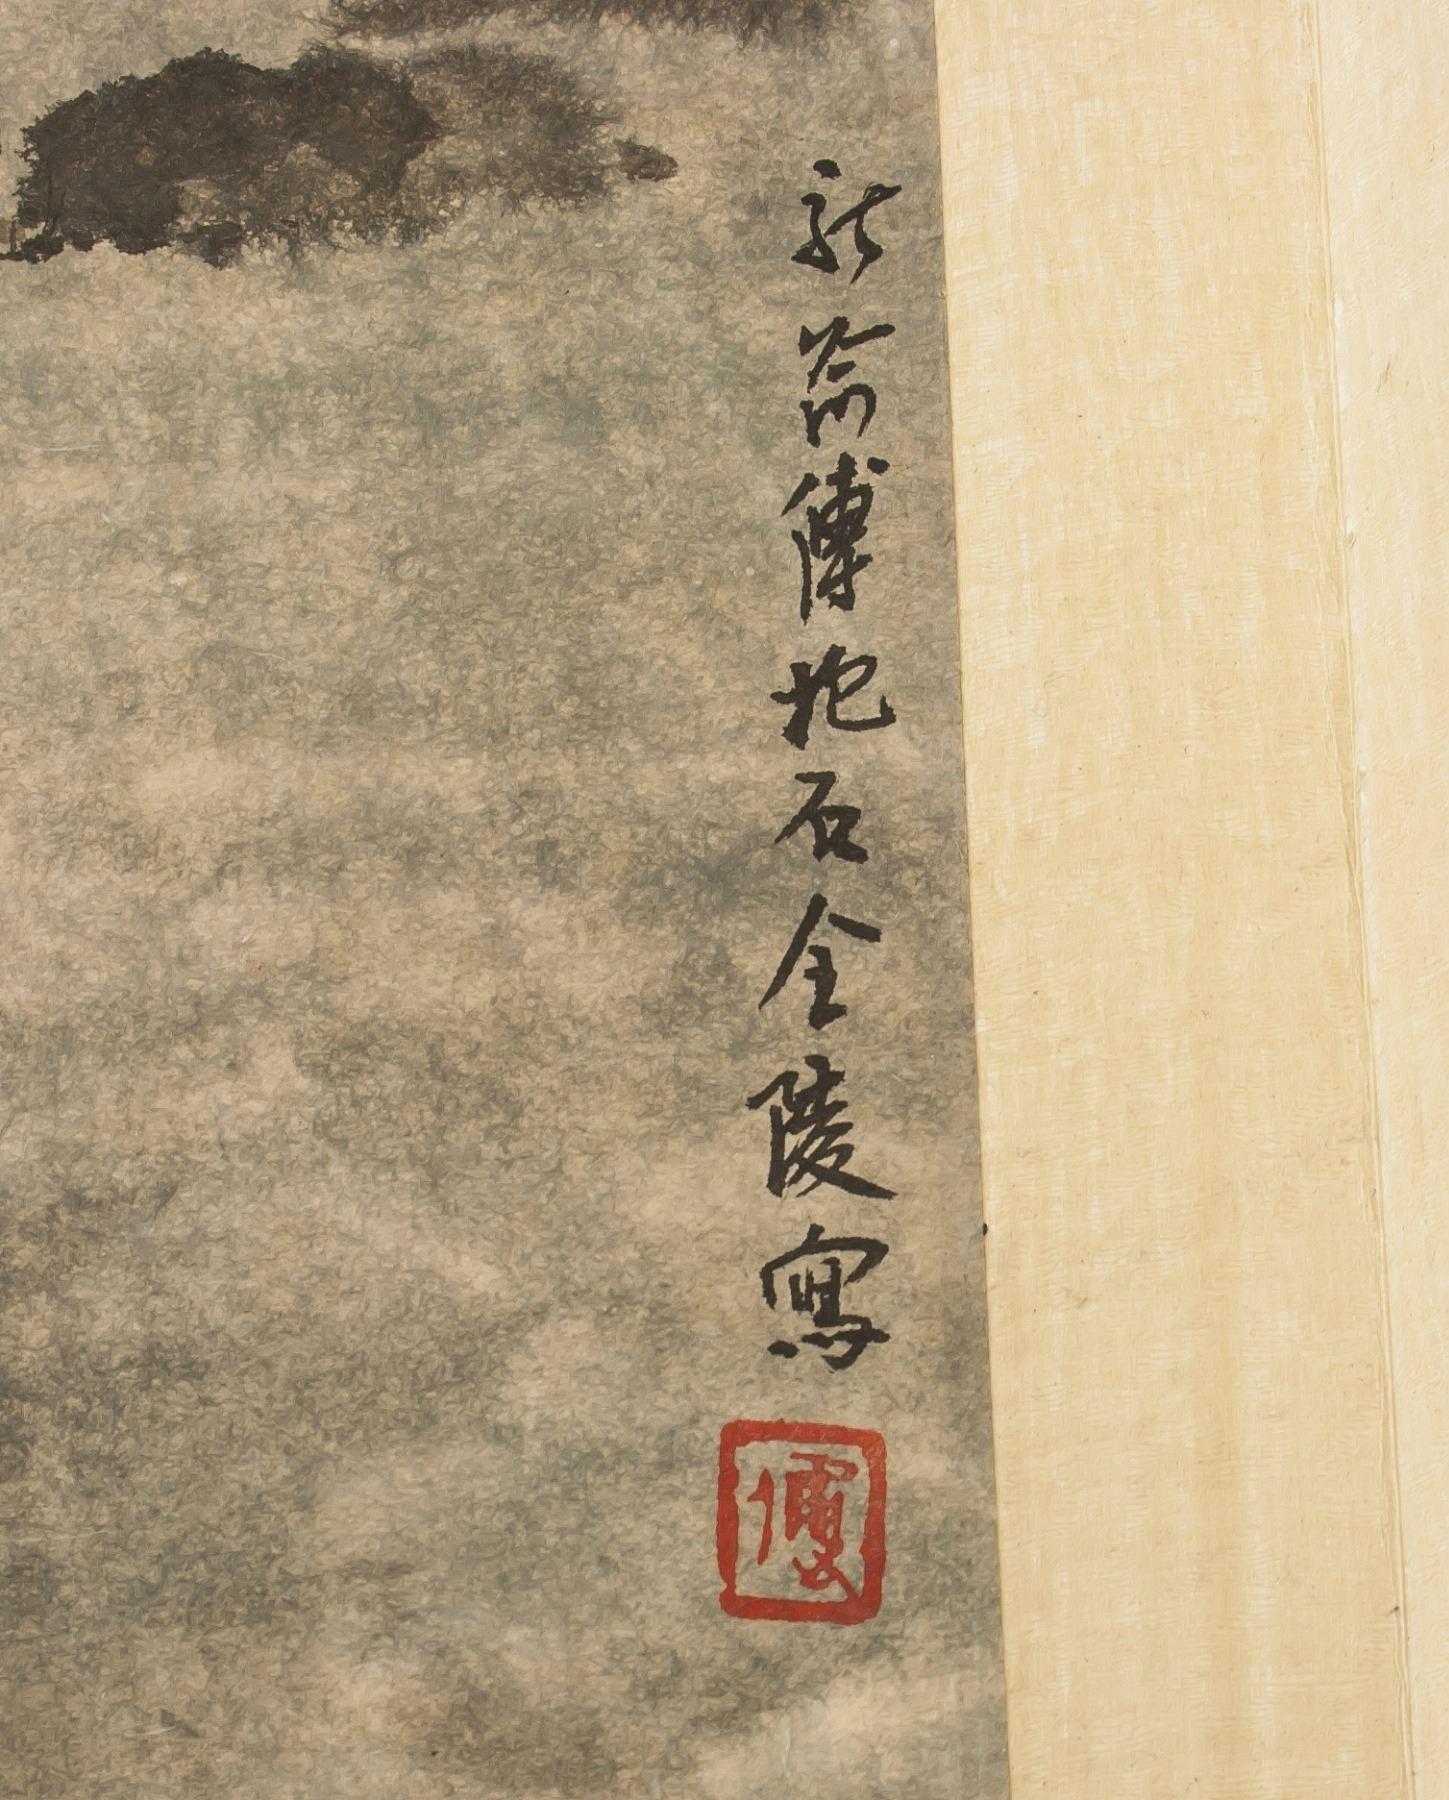 新喻傅抱石金陵寫